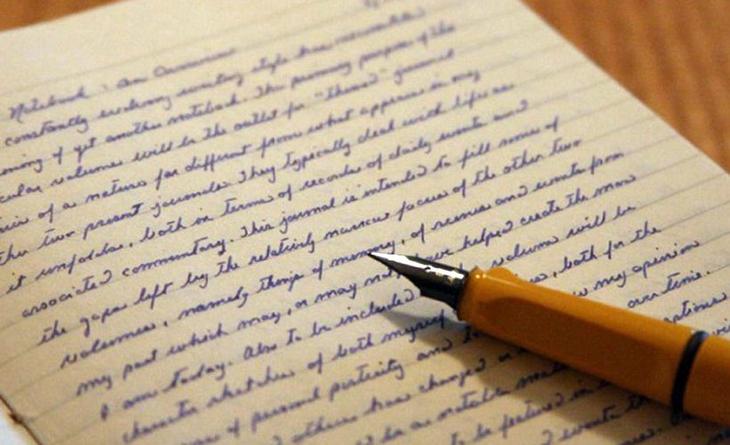 Notebook : An Overview
constantly evolving writing style has necessitated
coming of yet another notebook. The primary purpose of this
volume will be the outlet for "themed" journal
of a nature far different from what appears in my
other two present journals. They typically deal with life as
it unfolds, both in terms of records of daily events and
associated commentary. This journal is intended to fill some of
the gaps left by the relatively narrow focus of the other two
volumes, namely things of memory, of scenes and events from
my past which may, or may not have helped create the man
I am today. Also to be included volume will be
character sketches of both myself , both for the
of personal posterity and my opinion
others has changed over time.
to be a notable
to be featured in